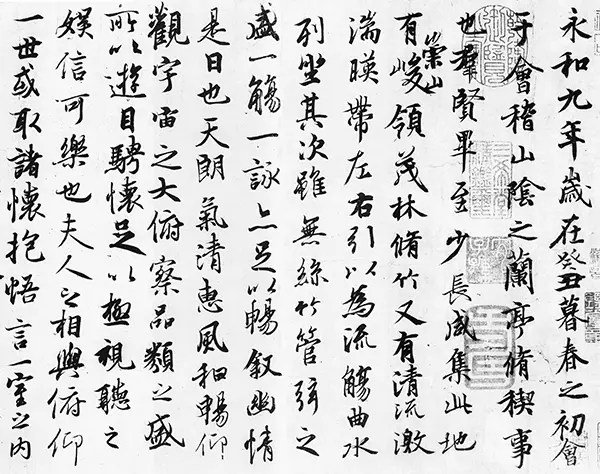 永和九年歲在癸丑暮春之初會
于會稽山陰之蘭亭脩稧事
也羣賢畢至少長咸集此地
有崇山峻領茂林脩竹又有清流激
湍暎帶左右引以為流觴曲水
列坐其次雖無絲竹管弦之
盛一觴一詠亦足以暢敘幽情
是日也天朗氣清惠風和暢仰
觀宇宙之大俯察品類之盛
所以遊目騁懷足以極視聽之
娛信可樂也夫人之相與俯仰
一世或取諸懷抱悟言一室之內